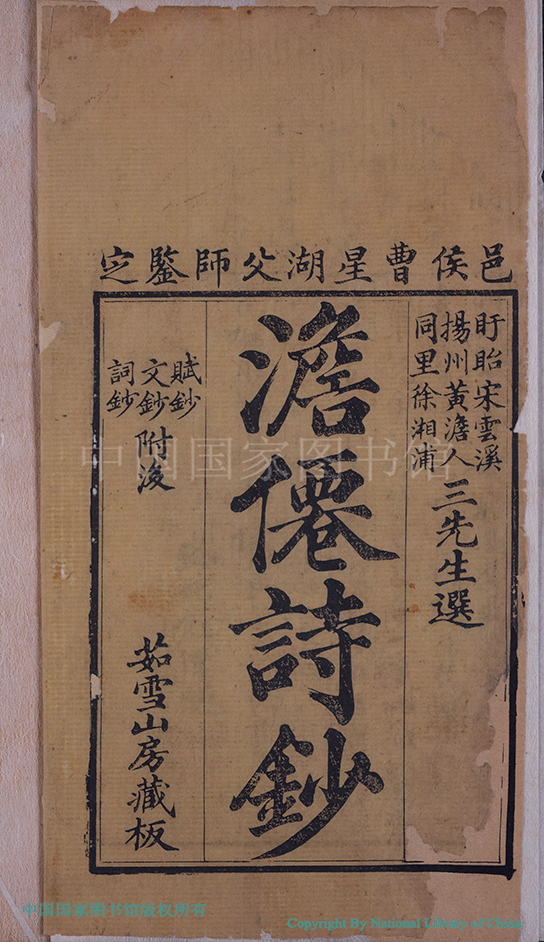 邑侯曹星湖父師鑒定
盱眙宋雲溪
揚州黃澹人
同里徐湘浦
三先生選
澹僊詩鈔
賦鈔
文鈔
詞鈔
附後
茹雪山房藏板
中国国家图书馆
中国国家图书馆版权所有
Copyright By National Library of China